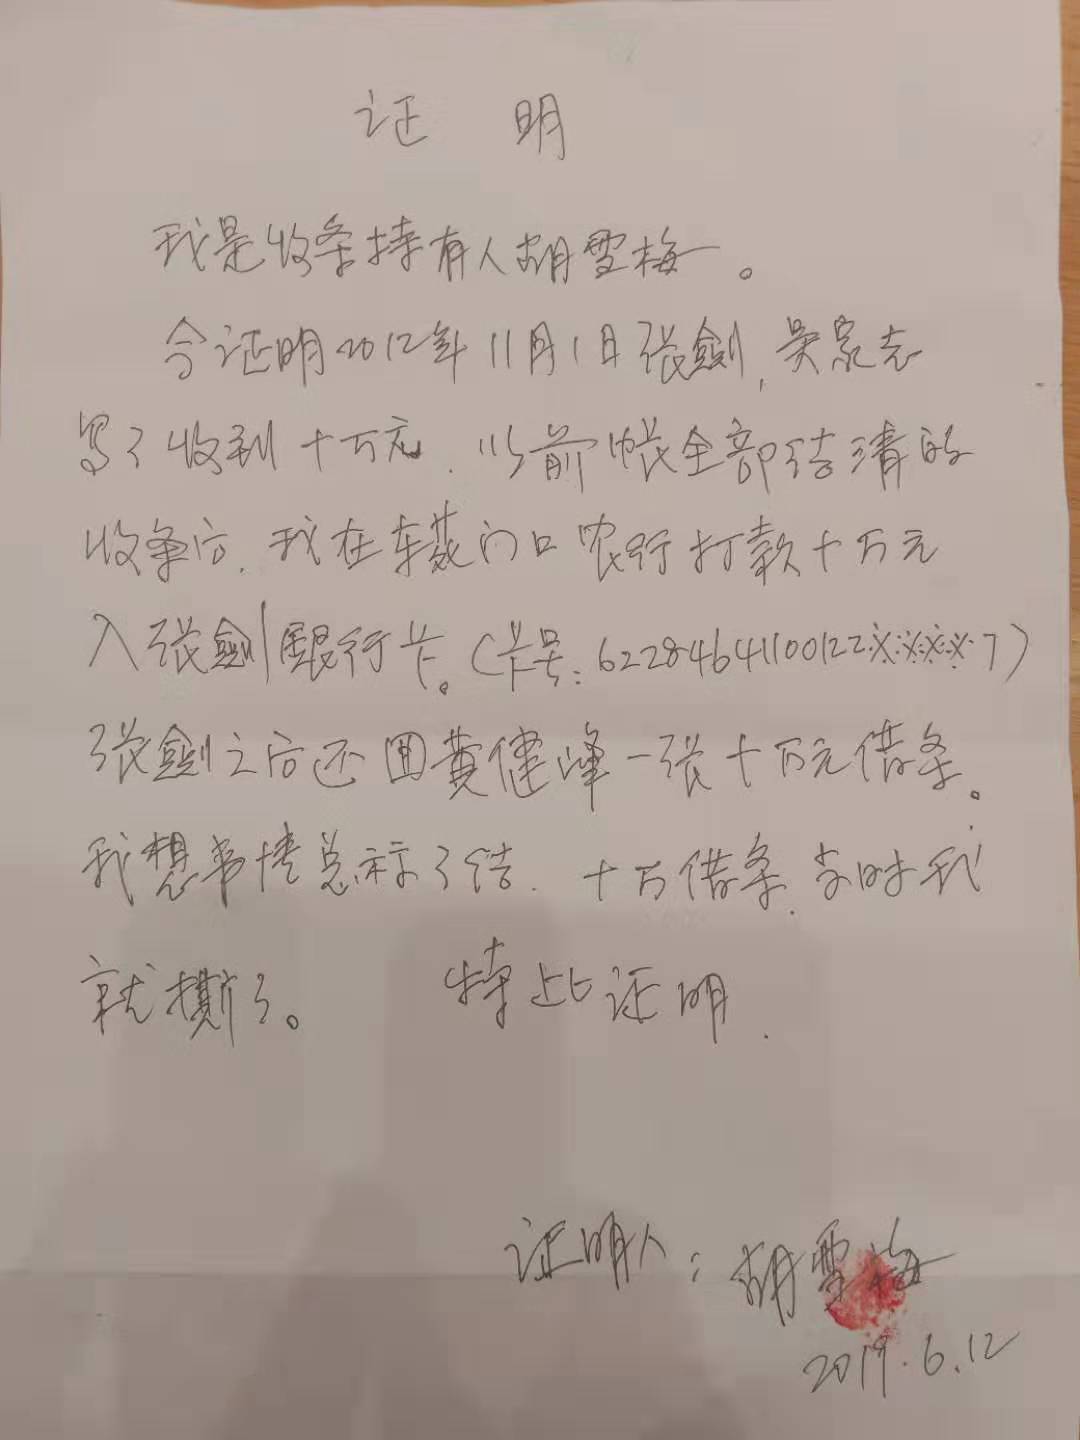 证 明
我是收条持有人胡雪梅。
今证明2012年11月1日张剑,吴家志
写了收到十万元.以前帐全部结清的
收条后.我在车莰门口农行打款十万元
入张剑银行卡。(卡号:62284641100122※※※※7)
张剑之后还回黄健峰一张十万元借条。
我想事情总算了结.十万借条.当时我
就撕了。 特此证明.
证明人:胡雪梅
2019.6.12